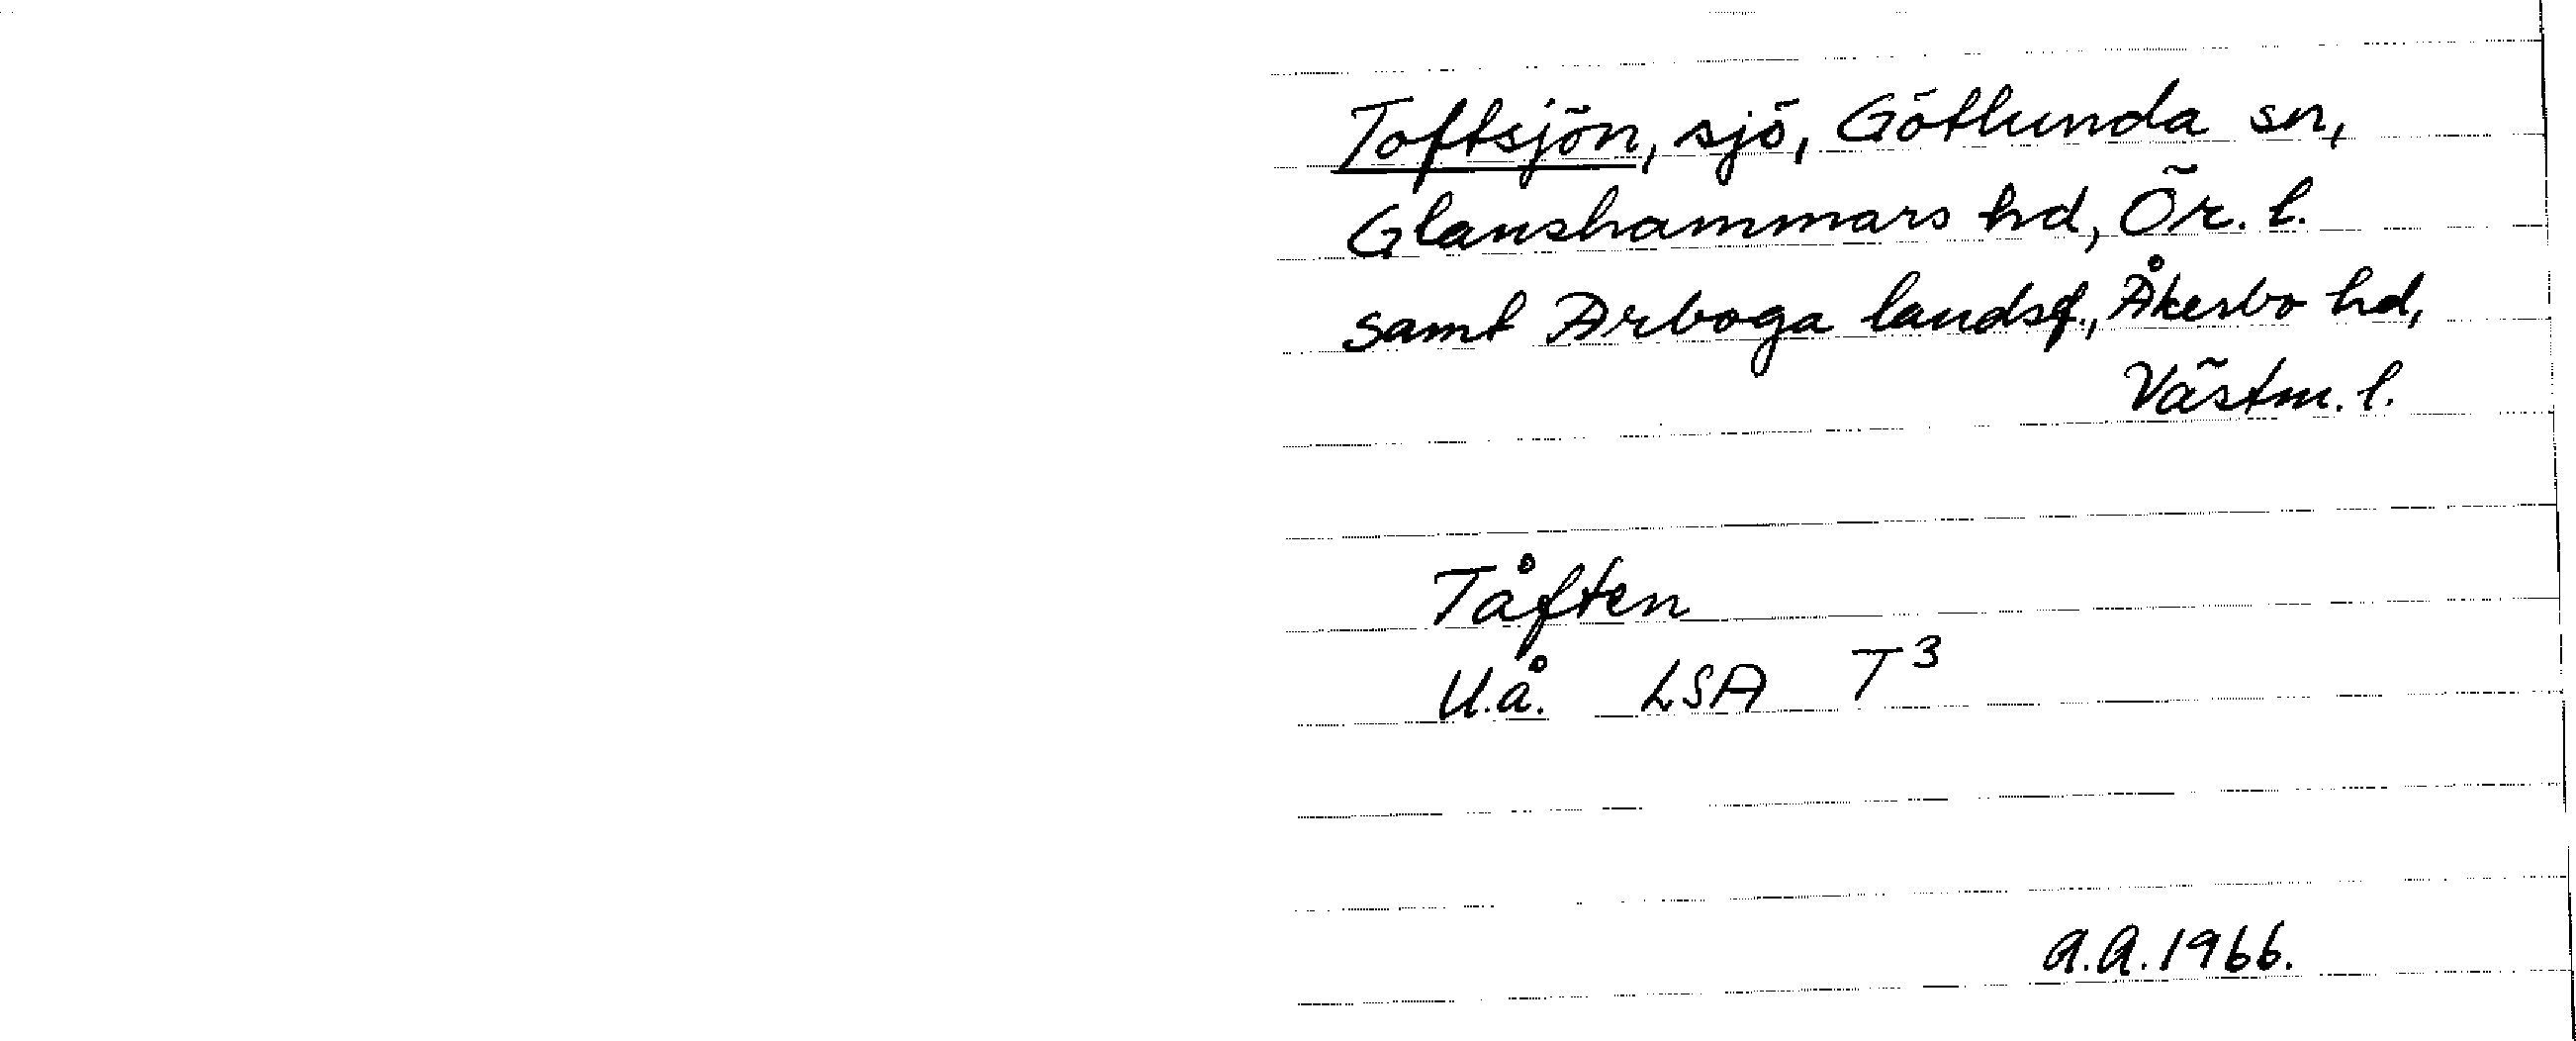 Toftsjön, sjö, Götlunda sn,
Glanshammars hd, Ör. l.
samt Arboga landsf., Åkerbo hd,
Västm. l.
Tåften
U.å. LSA T³
A.A. 1966.